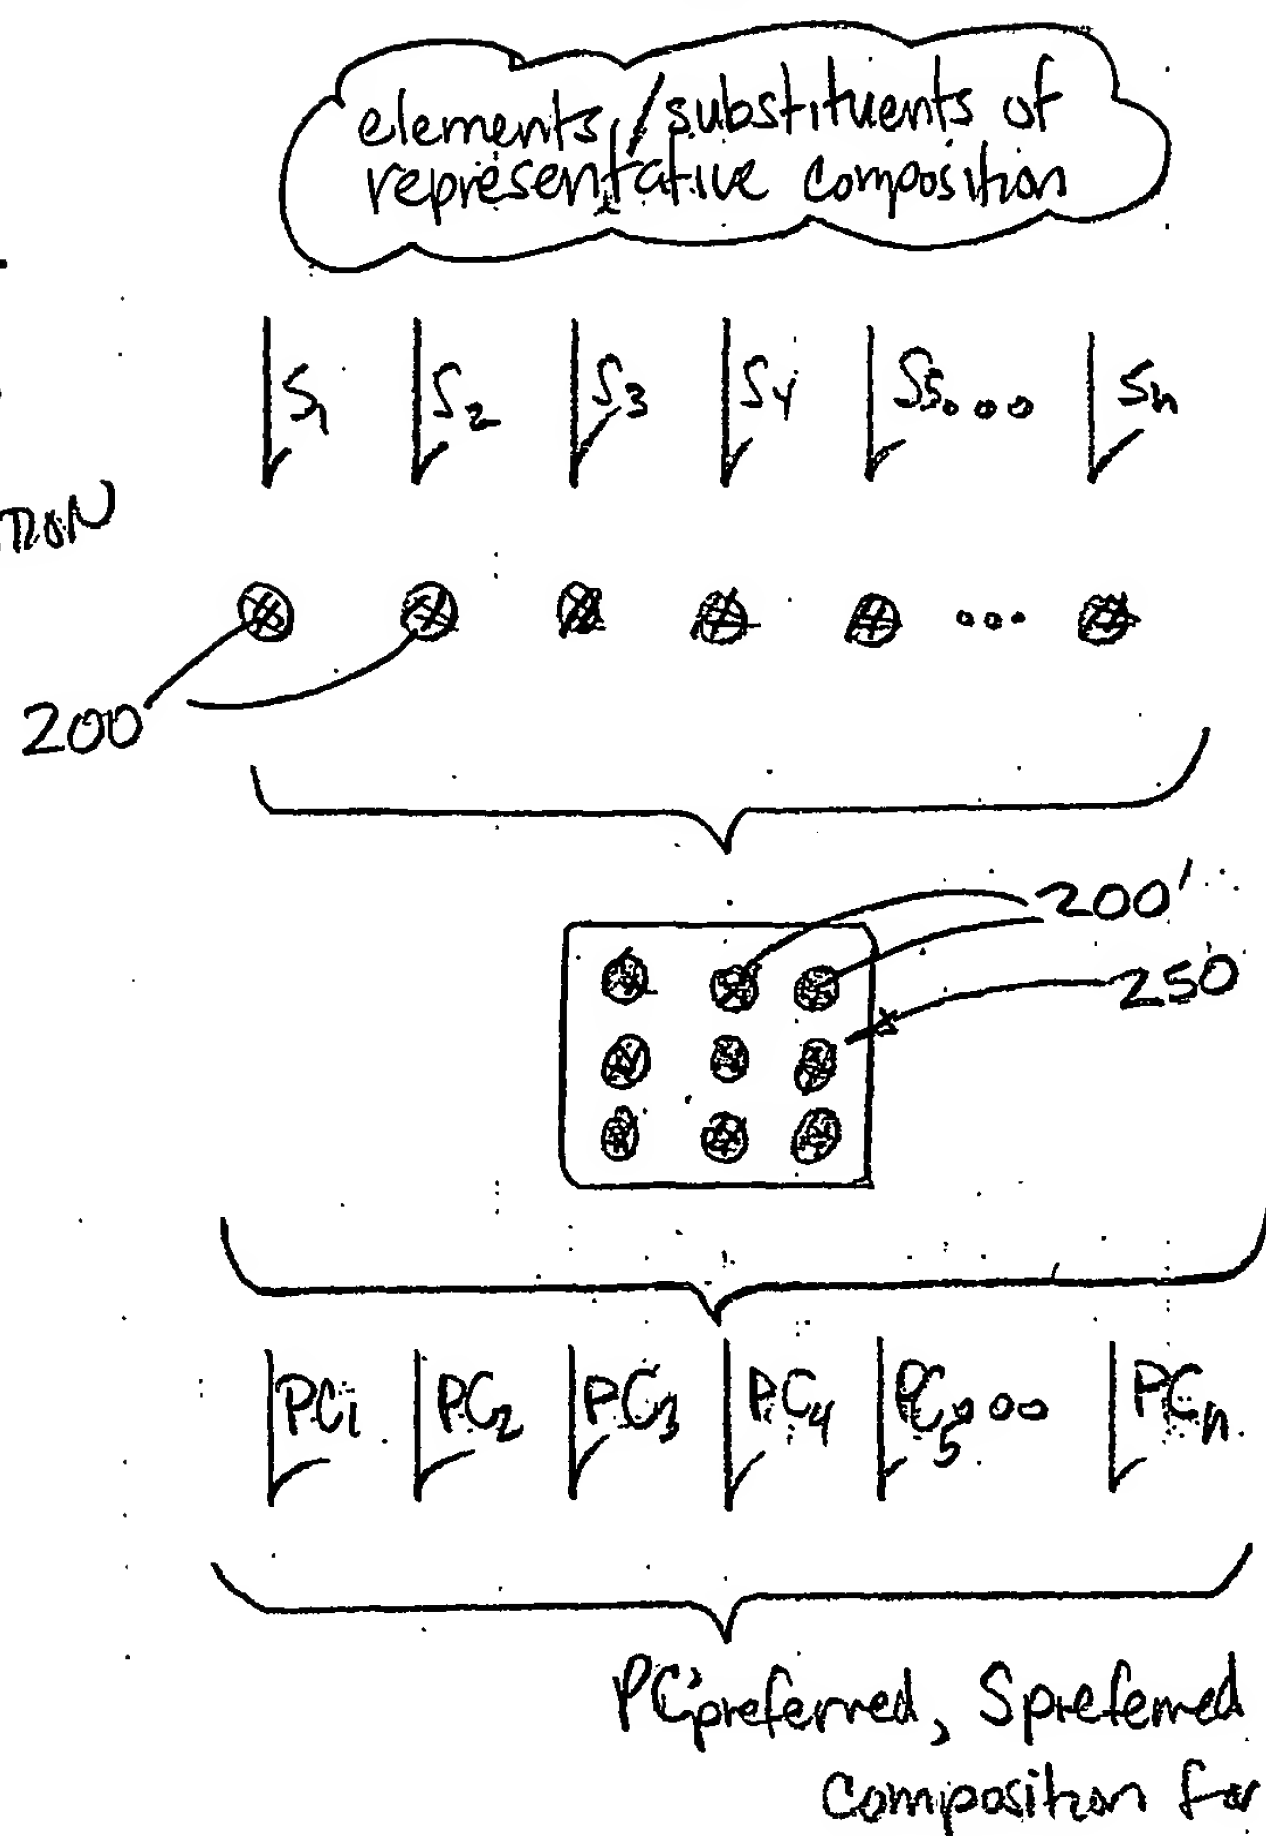 elements/substituents of
representative composition
S1 S2 S3 S4 S5 ... Sn
TION
200
200'
250
PC1 PC2 PC3 PC4 PC5 ... PCn
PCpreferred, Spreferred
composition for